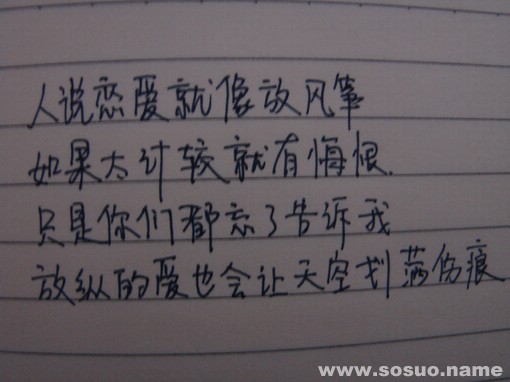 人说恋爱就像放风筝
如果太计较就有悔恨.
只是你们都忘了告诉我
放纵的爱也会让天空划满伤痕
www.sosuo.name